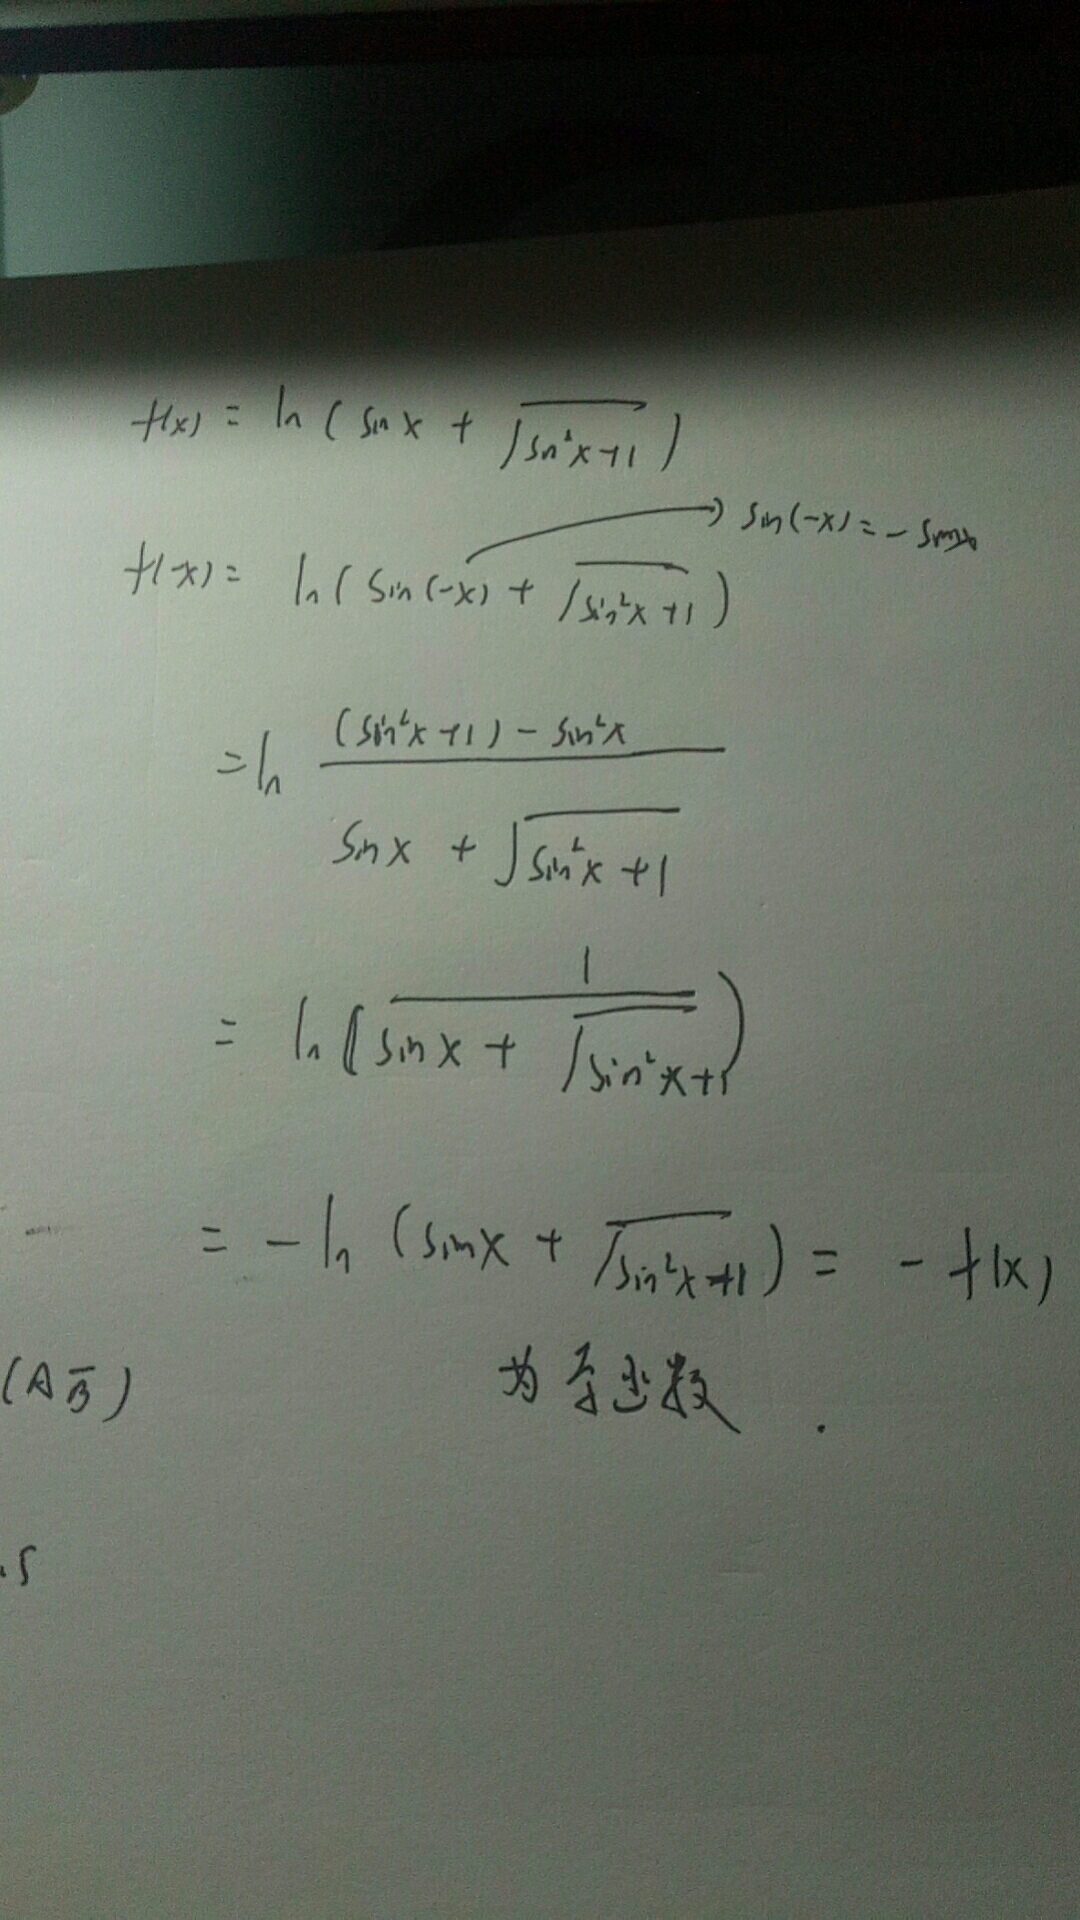 f(x) = ln ( sin x + √(sin²x+1) )
→ sin(-x) = - sinx
f(-x) = ln ( sin (-x) + √(sin²x +1) )
= ln (sin²x +1) - sin²x
sin x + √(sin²x +1)
= ln ( 1
sin x + √(sin²x+1) )
= - ln (sinx + √(sin²x+1) ) = - f(x)
(AB̅)
为奇函数.
.5